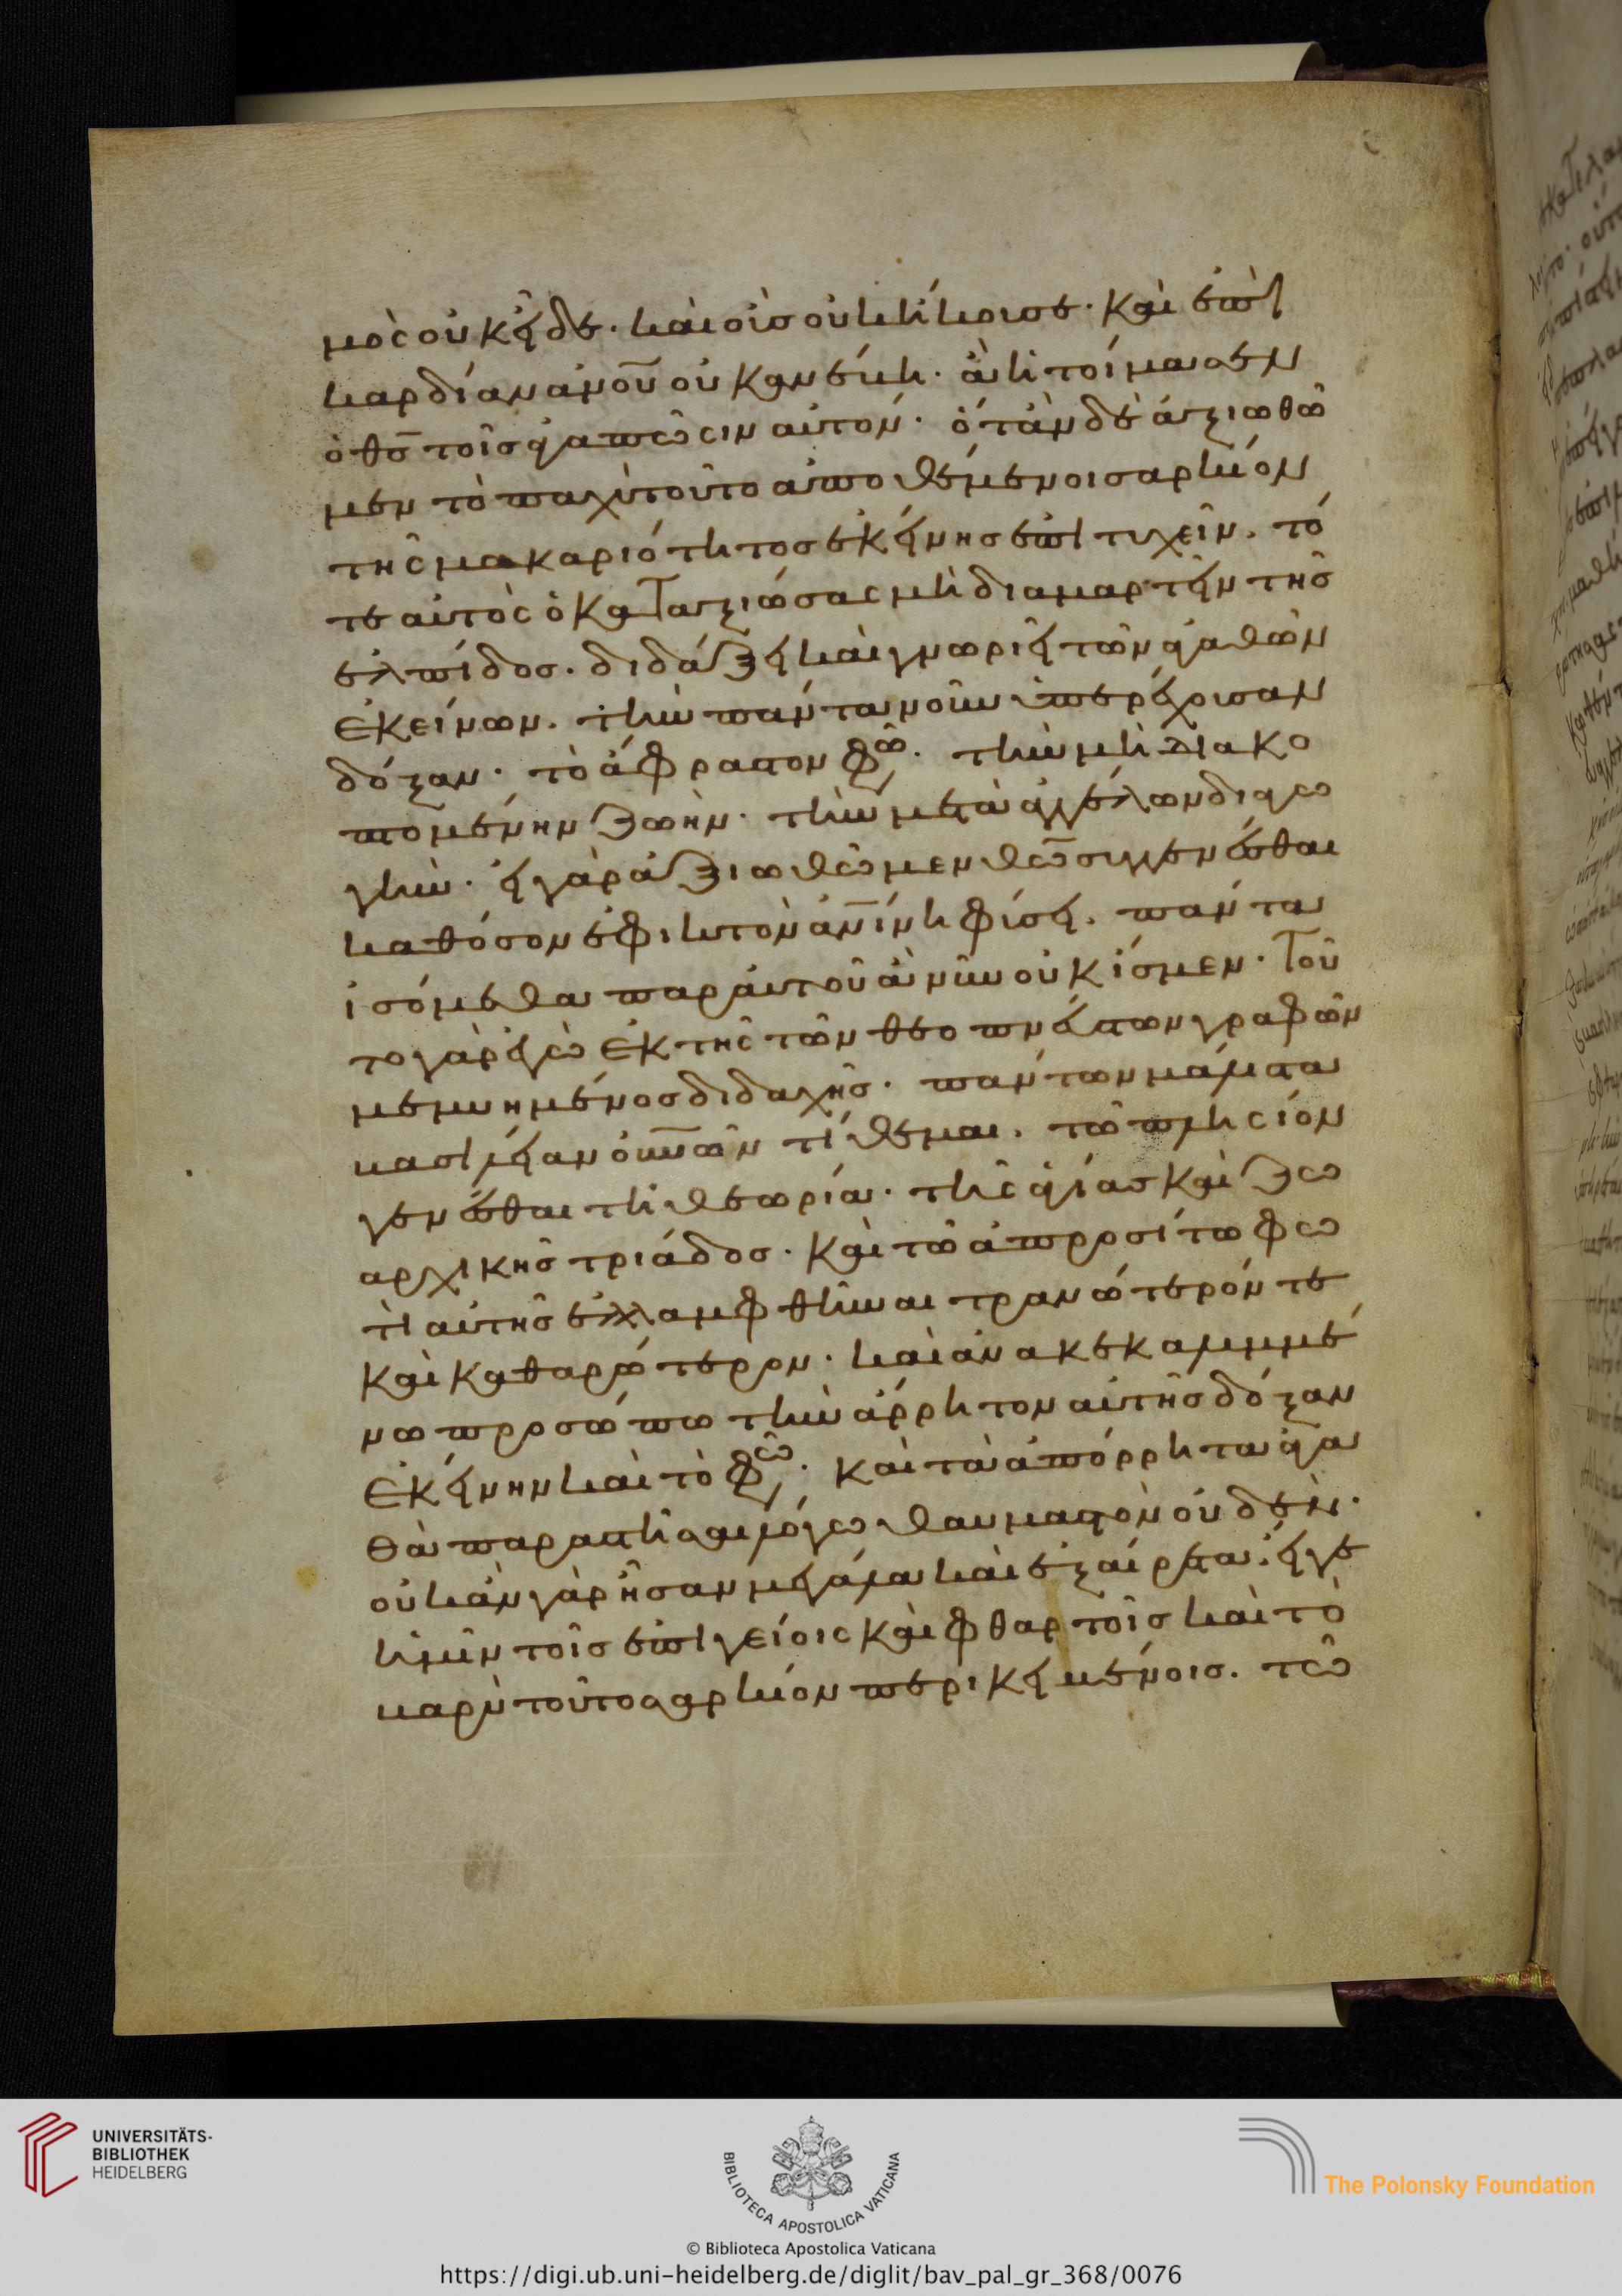 μὸς οὐκ εἶδε· καὶ οὖς οὐκ ἤκουσε· καὶ ἐπὶ
καρδίαν ἀν̅ου̅ οὐκ ἀνέβη· ἃ ἡτοίμασεν
ὁ θ̅ς̅ τοῖς ἀγαπῶσιν αὐτόν· ὅταν δὲ ἀξιωθῶ
μεν τὸ παχὺ τοῦτο ἀποθέμενοι σαρκίον
τῆς μακαριότητος ἐκείνης ἐπιτυχεῖν. τό
τε αὐτὸς ὁ καταξιώσας μὴ διαμαρτεῖν τῆς
ἐλπίδος. διδάξει καὶ γνωριεῖ τῶν ἀγαθῶν
ἐκείνων. τὴν πάντα νοῦν ὑπερέχουσαν
δόξαν· τὸ ἄφραστον φῶς. τὴν μὴ διακο
πομένην ζωὴν· τὴν μετὰ ἀγγέλων διαγω
γὴν· εἰ γὰρ ἀξιωθῶμεν θ̅ω̅ συγγενέσθαι
καθόσον ἐφικτὸν ἀν̅ίνη φύσει. πάντα
εἰσόμεθα παρ' αὐτοῦ ἃ νῦν οὐκ ἴσμεν· τοῦ
το γὰρ ἐγὼ ἐκ τῆς τῶν θεοπνεύστων γραφῶν
μεμυημένος διδαχῆς· πάντων μάλιστα
βασιλείαν οὐ̅ν̅ων τίθεμαι. τῶ πλησίον
γενέσθαι τῆ θεωρία· τῆς ἁγίας καὶ ζω
αρχικῆς τριάδος· καὶ τῶ ἀπροσίτω φω
τὶ αὐτῆς ἐλλαμφθῆναι τρανώτερόν τε
καὶ καθαρώτερον· καὶ ἀνακεκαλυμμέ
νω προσώπω τὴν ἄρρητον αὐτῆς δόξαν
ἐκείνην καὶ τὸ φῶς· καὶ τὰ ἀπόρρητα ἀγα
θὰ παραστῆσαι λόγω θαυμαστὸν οὐδὲν·
οὐκ ἂν γὰρ ἦσαν μεγάλα καὶ ἐξαίρετα· εἴγε
ἡμῖν τοῖς ἐπιγείοις καὶ φθαρτοῖς καὶ τὸ
βαρὺ τοῦτο σαρκίον περικειμένοις. τῶ
UNIVERSITÄTS-
BIBLIOTHEK
HEIDELBERG
BIBLIOTECA APOSTOLICA VATICANA
The Polonsky Foundation
© Biblioteca Apostolica Vaticana
https://digi.ub.uni-heidelberg.de/diglit/bav_pal_gr_368/0076